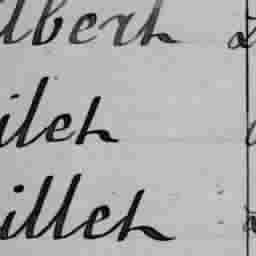 lbert
ilet
illet